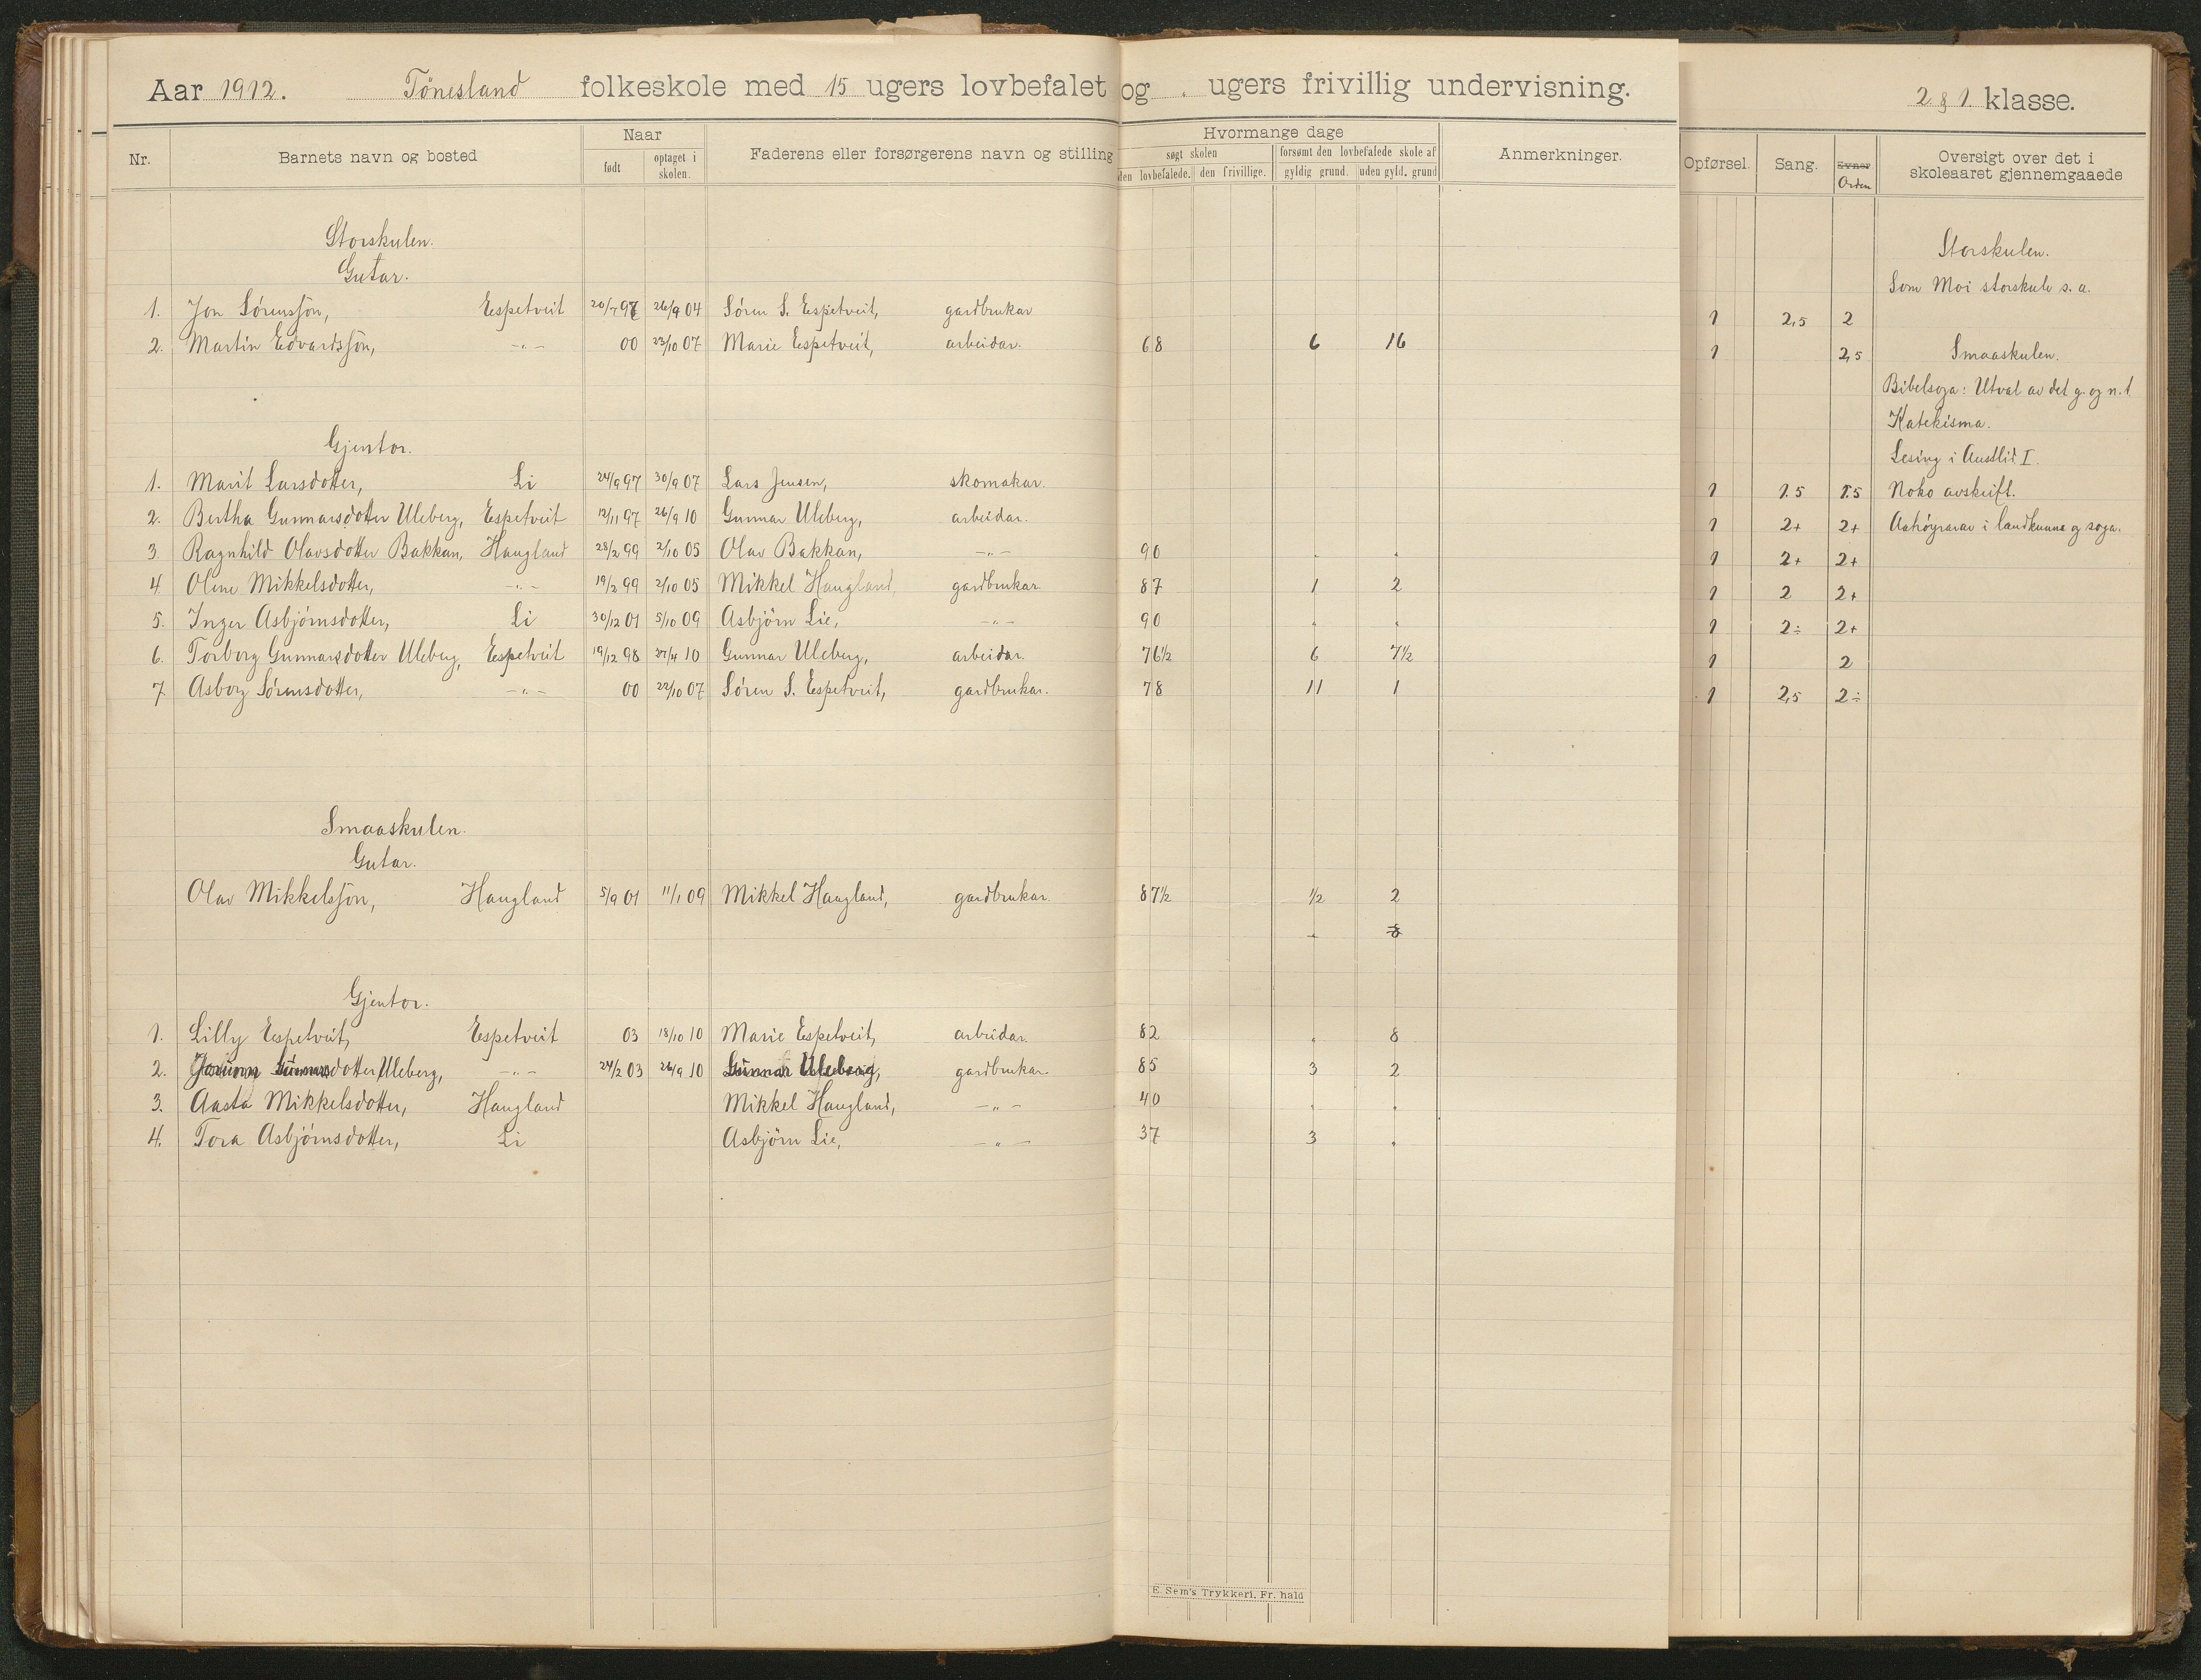 Aar 1912. Tönesland folkeskole med 15 ugers lovbefalet og . ugers frivillig undervisning. 2 & 1 klasse.
Nr. Barnets navn og bosted Naar født optaget i skolen. Faderens eller forsørgerens navn og stilling Hvormange dage søgt skolen den lovbefalede. den frivillige. forsømt den lovbefalede skole af gyldig grund. uden gyld. grund Anmerkninger. Opførsel. Sang. Evner Orden Oversigt over det i skoleaaret gjennemgaaede
Storskulen. Storskulen.
Gutar. Som Moi storskule s. a.
1. Jon Sørensson, Espetveit 20/7 97 26/9 04 Søren S. Espetveit, gardbrukar 1 2,5 2
2. Martin Edvardsson, -"- 00 23/10 07 Marie Espetveit, arbeidar. 68 6 16 1 2,5 Smaaskulen.
Bibelsoga: Utval av det g. og n. t
Katekisma.
Gjentor. Lesing i Austlid I.
1. Marit Larsdotter, Li 24/9 97 30/9 07 Lars Jensen, skomakar. 1 1.5 1.5 Noko avskrift.
2. Bertha Gunnarsdotter Uleberg, Espetveit 12/11 97 26/9 10 Gunnar Uleberg, arbeidar. 1 2+ 2+ Aahøyrarar i landkunna og soga.
3. Ragnhild Olavsdotter Bakkan, Haugland 28/2 99 2/10 05 Olav Bakkan, -"- 90 . . 1 2+ 2+
4. Oline Mikkelsdotter, -"- 19/2 99 2/10 05 Mikkel Haugland, gardbrukar. 87 1 2 1 2 2+
5. Inger Asbjörnsdotter, Li 30/12 01 5/10 09 Asbjörn Lie, -"- 90 . . 1 2÷ 2+
6. Torborg Gunnarsdotter Uleberg, Espetveit 19/12 98 27/4 10 Gunnar Uleberg, arbeidar. 76½ 6 7½ 1 2
7. Asborg Sørensdotter, -"- 00 22/10 07 Søren S. Espetveit, gardbrukar. 78 11 1 1 2,5 2÷
Smaaskulen.
Gutar.
Olav Mikkelsson, Haugland 5/9 01 11/1 09 Mikkel Haugland, gardbrukar. 87½ ½ 2
8
Gjentor.
1. Lilly Espetveit, Espetveit 03 18/10 10 Marie Espetveit, arbeidar. 82 . 8
2. Gunnarsdotter Uleberg, -"- 24/2 03 26/9 10 Gunnar Uleberg, gardbrukar. 85 3 2
3. Aasta Mikkelsdotter, Haugland Mikkel Haugland, -"- 40 . .
4. Tora Asbjörnsdotter, Li Asbjörn Lie, -"- 37 3 .
E. Sem's Trykkeri, Fr. hald